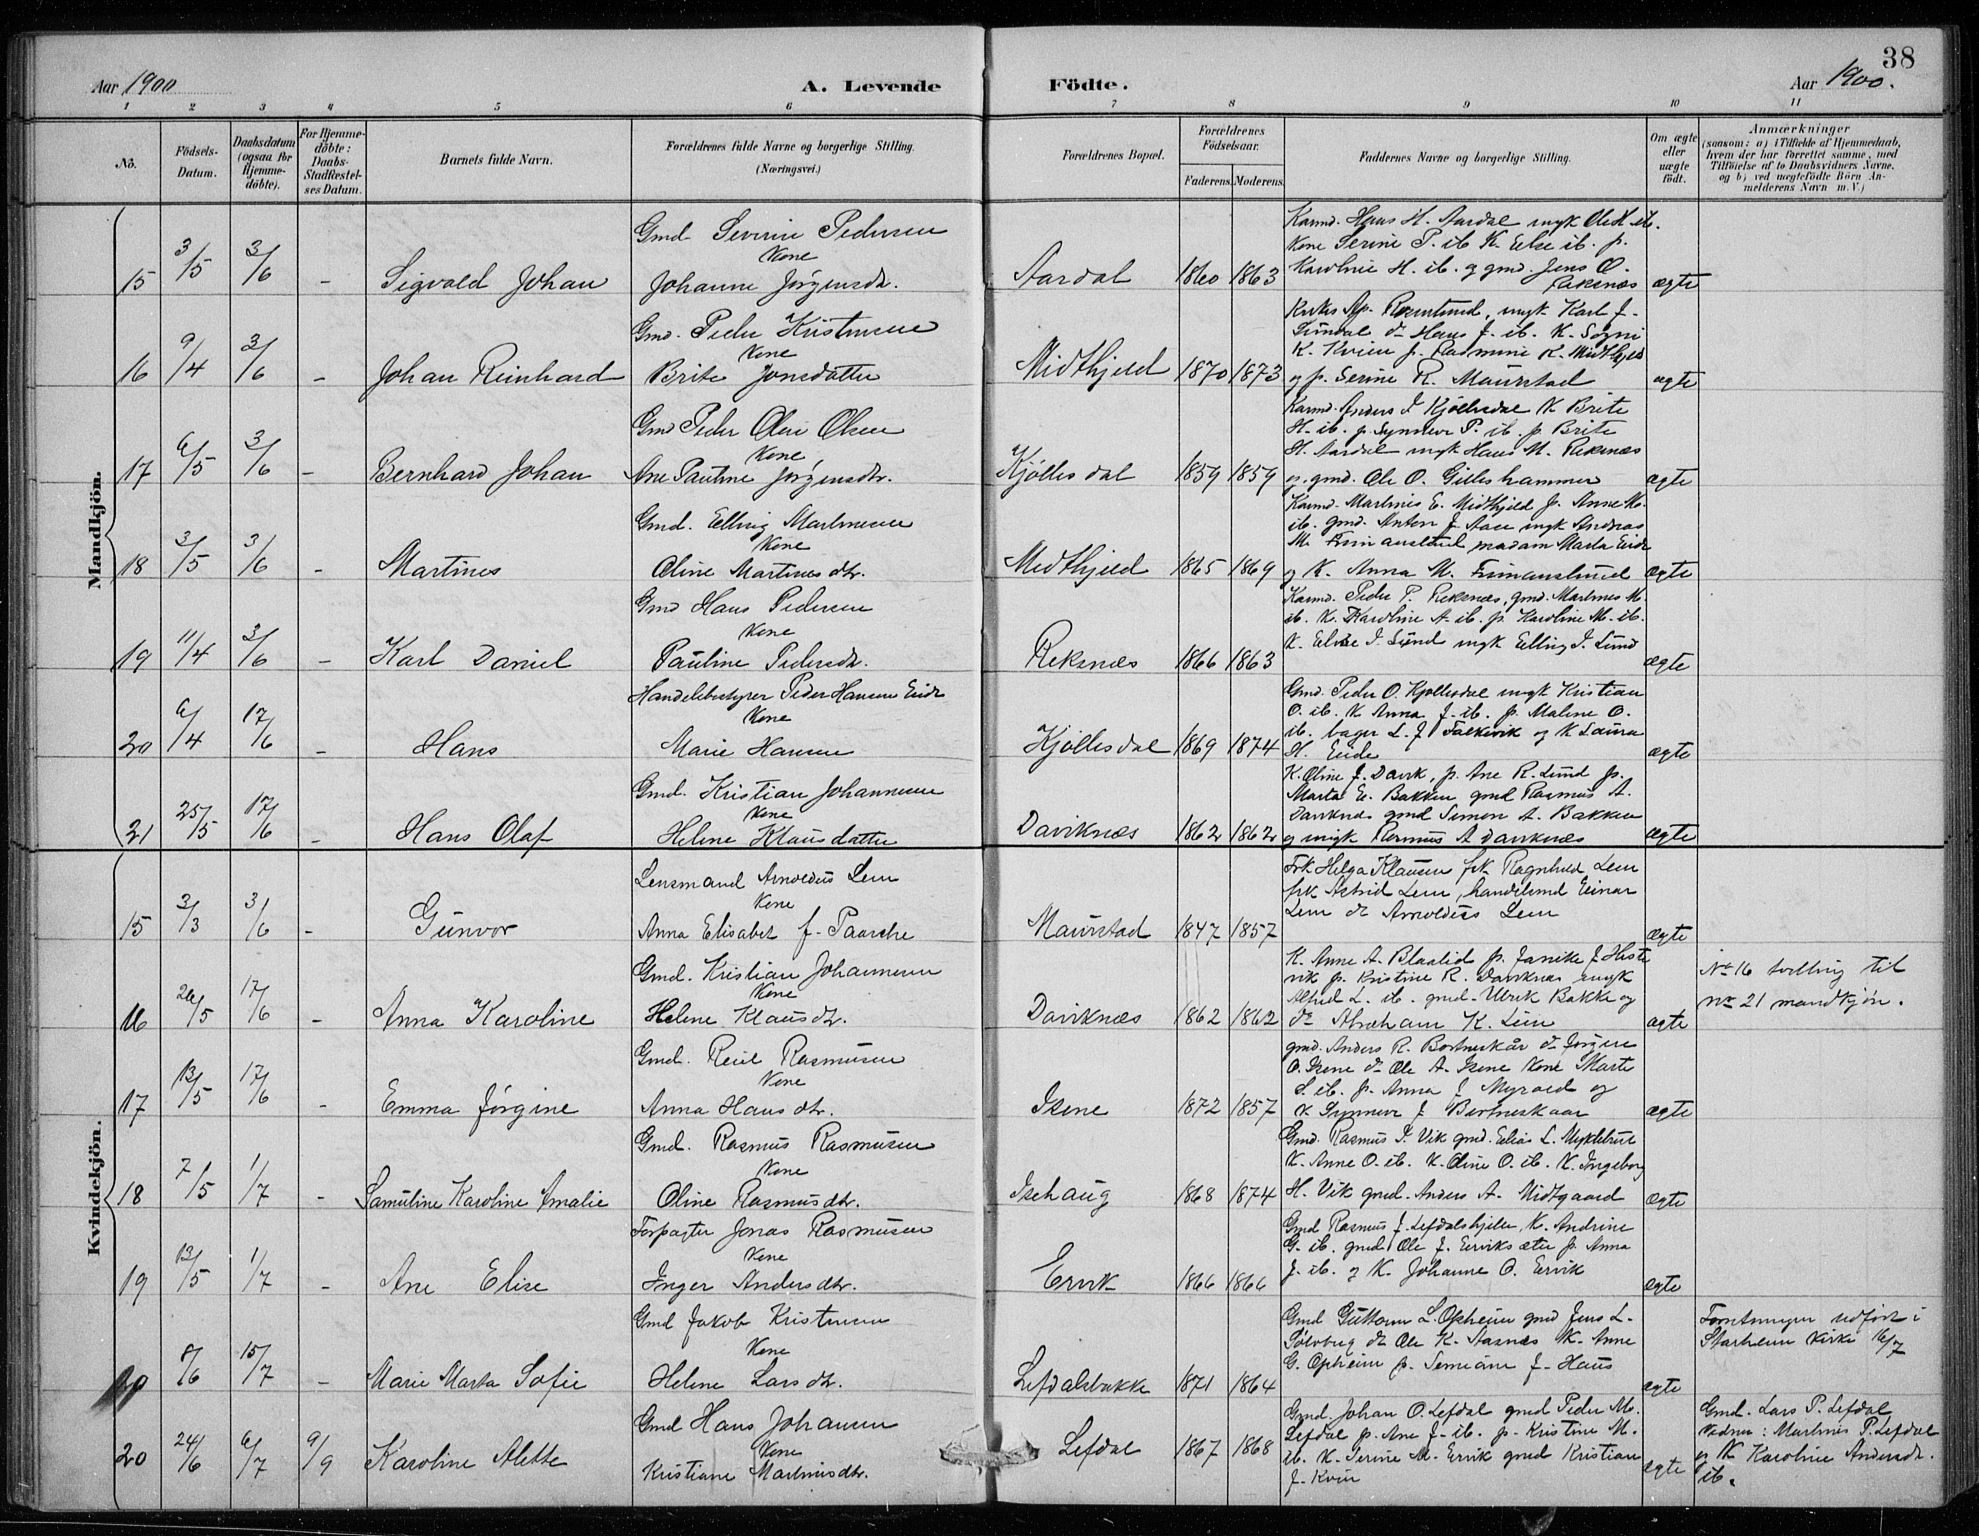 38
Aar 1900
A. Levende
Födte.
Aar 1900.
1 2 3 4 5 6 7 8 9 10 11
No.
Födsels-
Datum.
Daabsdatum
(ogsaa for
Hjemme-
døbte).
For Hjemme-
döbte:
Daabs-
Stadfæstel-
ses Datum.
Barnets fulde Navn.
Forældrenes fulde Navne og borgerlige Stilling.
(Næringsvei.)
Forældrenes Bopæl.
Forældrenes
Födselsaar.
Faderens. Moderens.
Faddernes Navne og borgerlige Stilling.
Om ægte
eller
uægte
født.
Anmærkninger
(saasom: a) i Tilfælde af Hjemmedaab,
hvem der har forrettet samme, med
Tilföielse af to Daabsvidners Navne,
og b) ved uægtefödte Börn An-
melderens Navn m. V.)
Mandkjön.
15 3/5 3/6 - Sigvald Johan
Gmd Severin Pedersen
Kone
Johanne Jørgensdr.
Aardal 1860 1863
Karmd. Hans H. Aardal ungk Ole H. ib.
Kone Serine P. ib K. Else ib. p.
Karoline H. ib. og gmd. Jens O.
Reksnæs
ægte
16 9/4 3/6 - Johan Reinhard
Gmd. Peder Kristensen
Kone
Brite Jonsdatter
Midthjeld 1870 1873
ungk Karl J.
do Hans J. ib. K.
K. Kvien p. Rasmine K. Midthjeld
og p. Serine R. Maurstad
ægte
17 6/5 3/6 - Bernhard Johan
Gmd Peder Olai Olsen
Kone
Ane Pauline Jørgensdr.
Kjøllesdal 1859 1859
Karmd. Anders I Kjøllesdal K Brite
H. ib. p. Synneve P. ib p Brite
H. Aardal ungk Hans M. Reksnæs
og gmd. Ole O. Gilleshammer
ægte
18 3/5 3/6 - Martines
Gmd. Elling Martinesen
Kone
Oline Martinesdr.
Midthjeld 1865 1869
Karmd. Martines E. Midthjeld p. Anne M.
ib. gmd. Anton J. Aase ungk Andreas
M. madam Marta Eide
og K. Anna M.
ægte
19 11/4 3/6 - Karl Daniel
Gmd Hans Pedersen
Kone
Pauline Pedersdr.
Reksnæs 1866 1863
Karmd. Peder P. Reksnæs, gmd. Martines M.
ib. K. Karoline A. ib. p. Karoline M. ib.
K. Elise I. Lund ungk Elling I. Lund
ægte
20 6/4 17/6 - Hans
Handelsbestyrer Peder Hansen Eide
Kone
Marie Hansen
Kjøllesdal 1869 1874
Gmd. Peder O. Kjøllesdal ungk Kristian
O. ib. K Anna J. ib. p. Maline O.
ib. bager L. J. Falkevik og K Laura
H. Eide
ægte
21 25/5 17/6 - Hans Olaf
Gmd. Kristian Johannesen
Kone
Helene Klausdatter
Daviknæs 1862 1862
K. Oline J. Davik, p. Ane R. Lund p.
Marta E. Bakken gmd Rasmus A.
Daviknæs gmd Simon A. Bakken
og ungk Rasmus A Daviknæs
ægte
Kvindekjön.
15 3/3 3/6 - Gunvor
Lensmand Arnoldus Lem
Kone
Anna Elisabet f. Paasche
Maurstad 1847 1857
Frk Helga Klausen frk Ragnhild Lem
frk Astrid Lem, handelsmd Einar
Lem do Arnoldus Lem
ægte
16 26/5 17/6 - Anna Karoline
Gmd. Kristian Johannesen
Kone
Helene Klausdr.
Daviknæs 1862 1862
K. Anne A. Blaalid p. Janike J. Heste
vik p. Kristine R. Daviknæs ungk
Alfred L. ib. gmd. Ulrik Bakke og
do Abraham K. Lem
ægte
No 16 tvilling til
no 21 mandkjøn.
17 13/5 17/6 - Emma Jørgine
Gmd. Reiel Rasmusen
Kone
Anna Hansdr.
Isene 1872 1857
gmd. Anders R. Bortneskår do Jørgen
O. Isene do Ole A. Isene Kone Marte
S. ib. p. Anna J Myrold og
K Synneve J Bortneskaar
ægte
18 7/5 1/7 - Samuline Karoline Amalie
Gmd. Rasmus Rasmusen
Kone
Oline Rasmusdr.
Isehaug 1868 1874
Gmd. Rasmus I. Vik gmd. Elias L. Myklebust
K. Anne O. ib. K. Oline O. ib. K. Ingeborg
H. Vik gmd. Anders A. Midtgaard
ægte
19 13/5 1/7 - Ane Elise
Forpagter Jonas Rasmusen
Kone
Inger Andersdr.
Ervik 1866 1866
Gmd Rasmus J. Lefdalshjelle, K. Andrine
G. ib. gmd Ole J. Erviksæter p. Anna
J. ib. og K. Johanne O. Ervik
ægte
20 8/6 15/7 - Marie Marta Sofie
Gmd Jakob Kristensen
Kone
Helene Larsdr.
Lefdalsbakke 1871 1864
Gmd Guttorm L. Opheim gmd Jens L.
Sølvberg do Ole K. Aasnæs K. Anne
G. Opheim p. Semiane J. Haus
ægte
Forretningen udført i
Starheim kirke
20 24/6 6/7 9/9 Karoline Alette
Gmd Hans Johansen
Kone
Kristiane Martinusdr.
Lefdal 1867 1868
Gmd. Johan O. Lefdal gmd Peder M.
Lefdal p. Ane J. ib. p. Kristine M.
ib. K. Serine M. Ervik gmd Kristian
J. Kvien
ægte
Gmd. Lars P. Lefdal
Vidner: Martinus P. Lefdal
og K Karoline Andersdr.
ib.